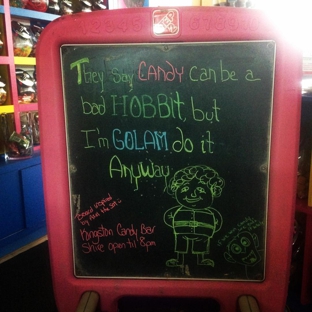 They say CANDY can be a
bad HOBBIT, but
I'm GOLAM do it
Anyway
Board inspired
Kingston Candy Bar
Store open til' 8pm